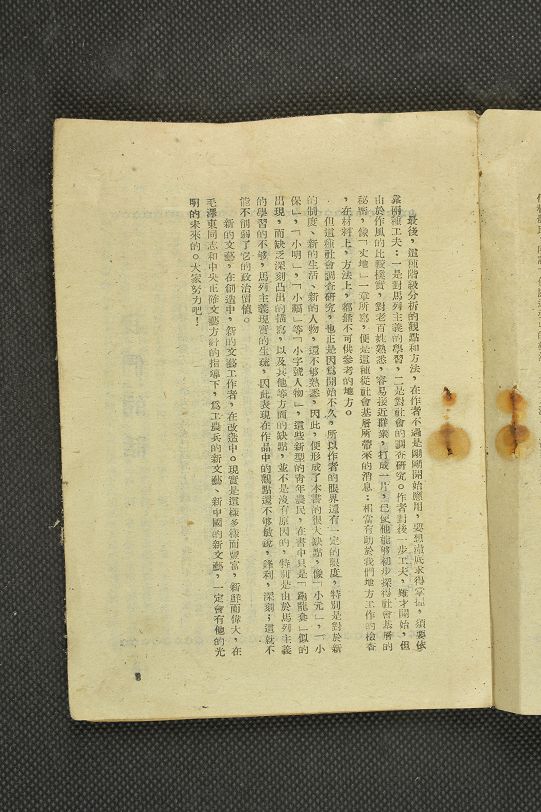 最後，這種階級分析的觀點和方法，在作者不過是剛剛開始應用，要想澈底求得掌握，須要依
靠兩種工夫：一是對馬列主義的學習，二是對社會的調查研究。作者對後一步工夫，雖才開始，但
由於作風的比較樸實，對老百姓熟悉，容易接近羣衆，打成一片，已使他能够初步探得社會基層的
秘密，像「丈地」一章所寫，便是這種從社會基層所帶來的消息；相當有助於我們地方工作的檢查
，在材料上，方法上，都無不可供參考的地方。
但這種社會調查研究，也正是因爲開始不久，所以作者的眼界還有一定的限度，特別是對於新
的制度、新的生活、新的人物，還不够熟悉，因此，便形成了本書的很大缺點，像「小元」，「小
保」，「小明」，「小福」等「小字號人物」，這些新型的青年農民，在書中只是「跑龍套」似的
出現，而缺乏深刻凸出的描寫，以及其他等方面的缺點，並不是沒有原因的，特別是由於馬列主義
的學習的不够，馬列主義現實的生疏，因此表現在作品中的觀點還不够敏銳，鋒利，深刻；這就不
能不削弱了它的政治價値。
新的文藝，在創造中，新的文藝工作者，在改造中。現實是這樣多樣而豐富，新鮮而偉大，在
毛澤東同志和中央正確文藝方針的指導下，爲工農兵的新文藝、新中國的新文藝，一定會有他的光
明的未來的。大家努力吧！